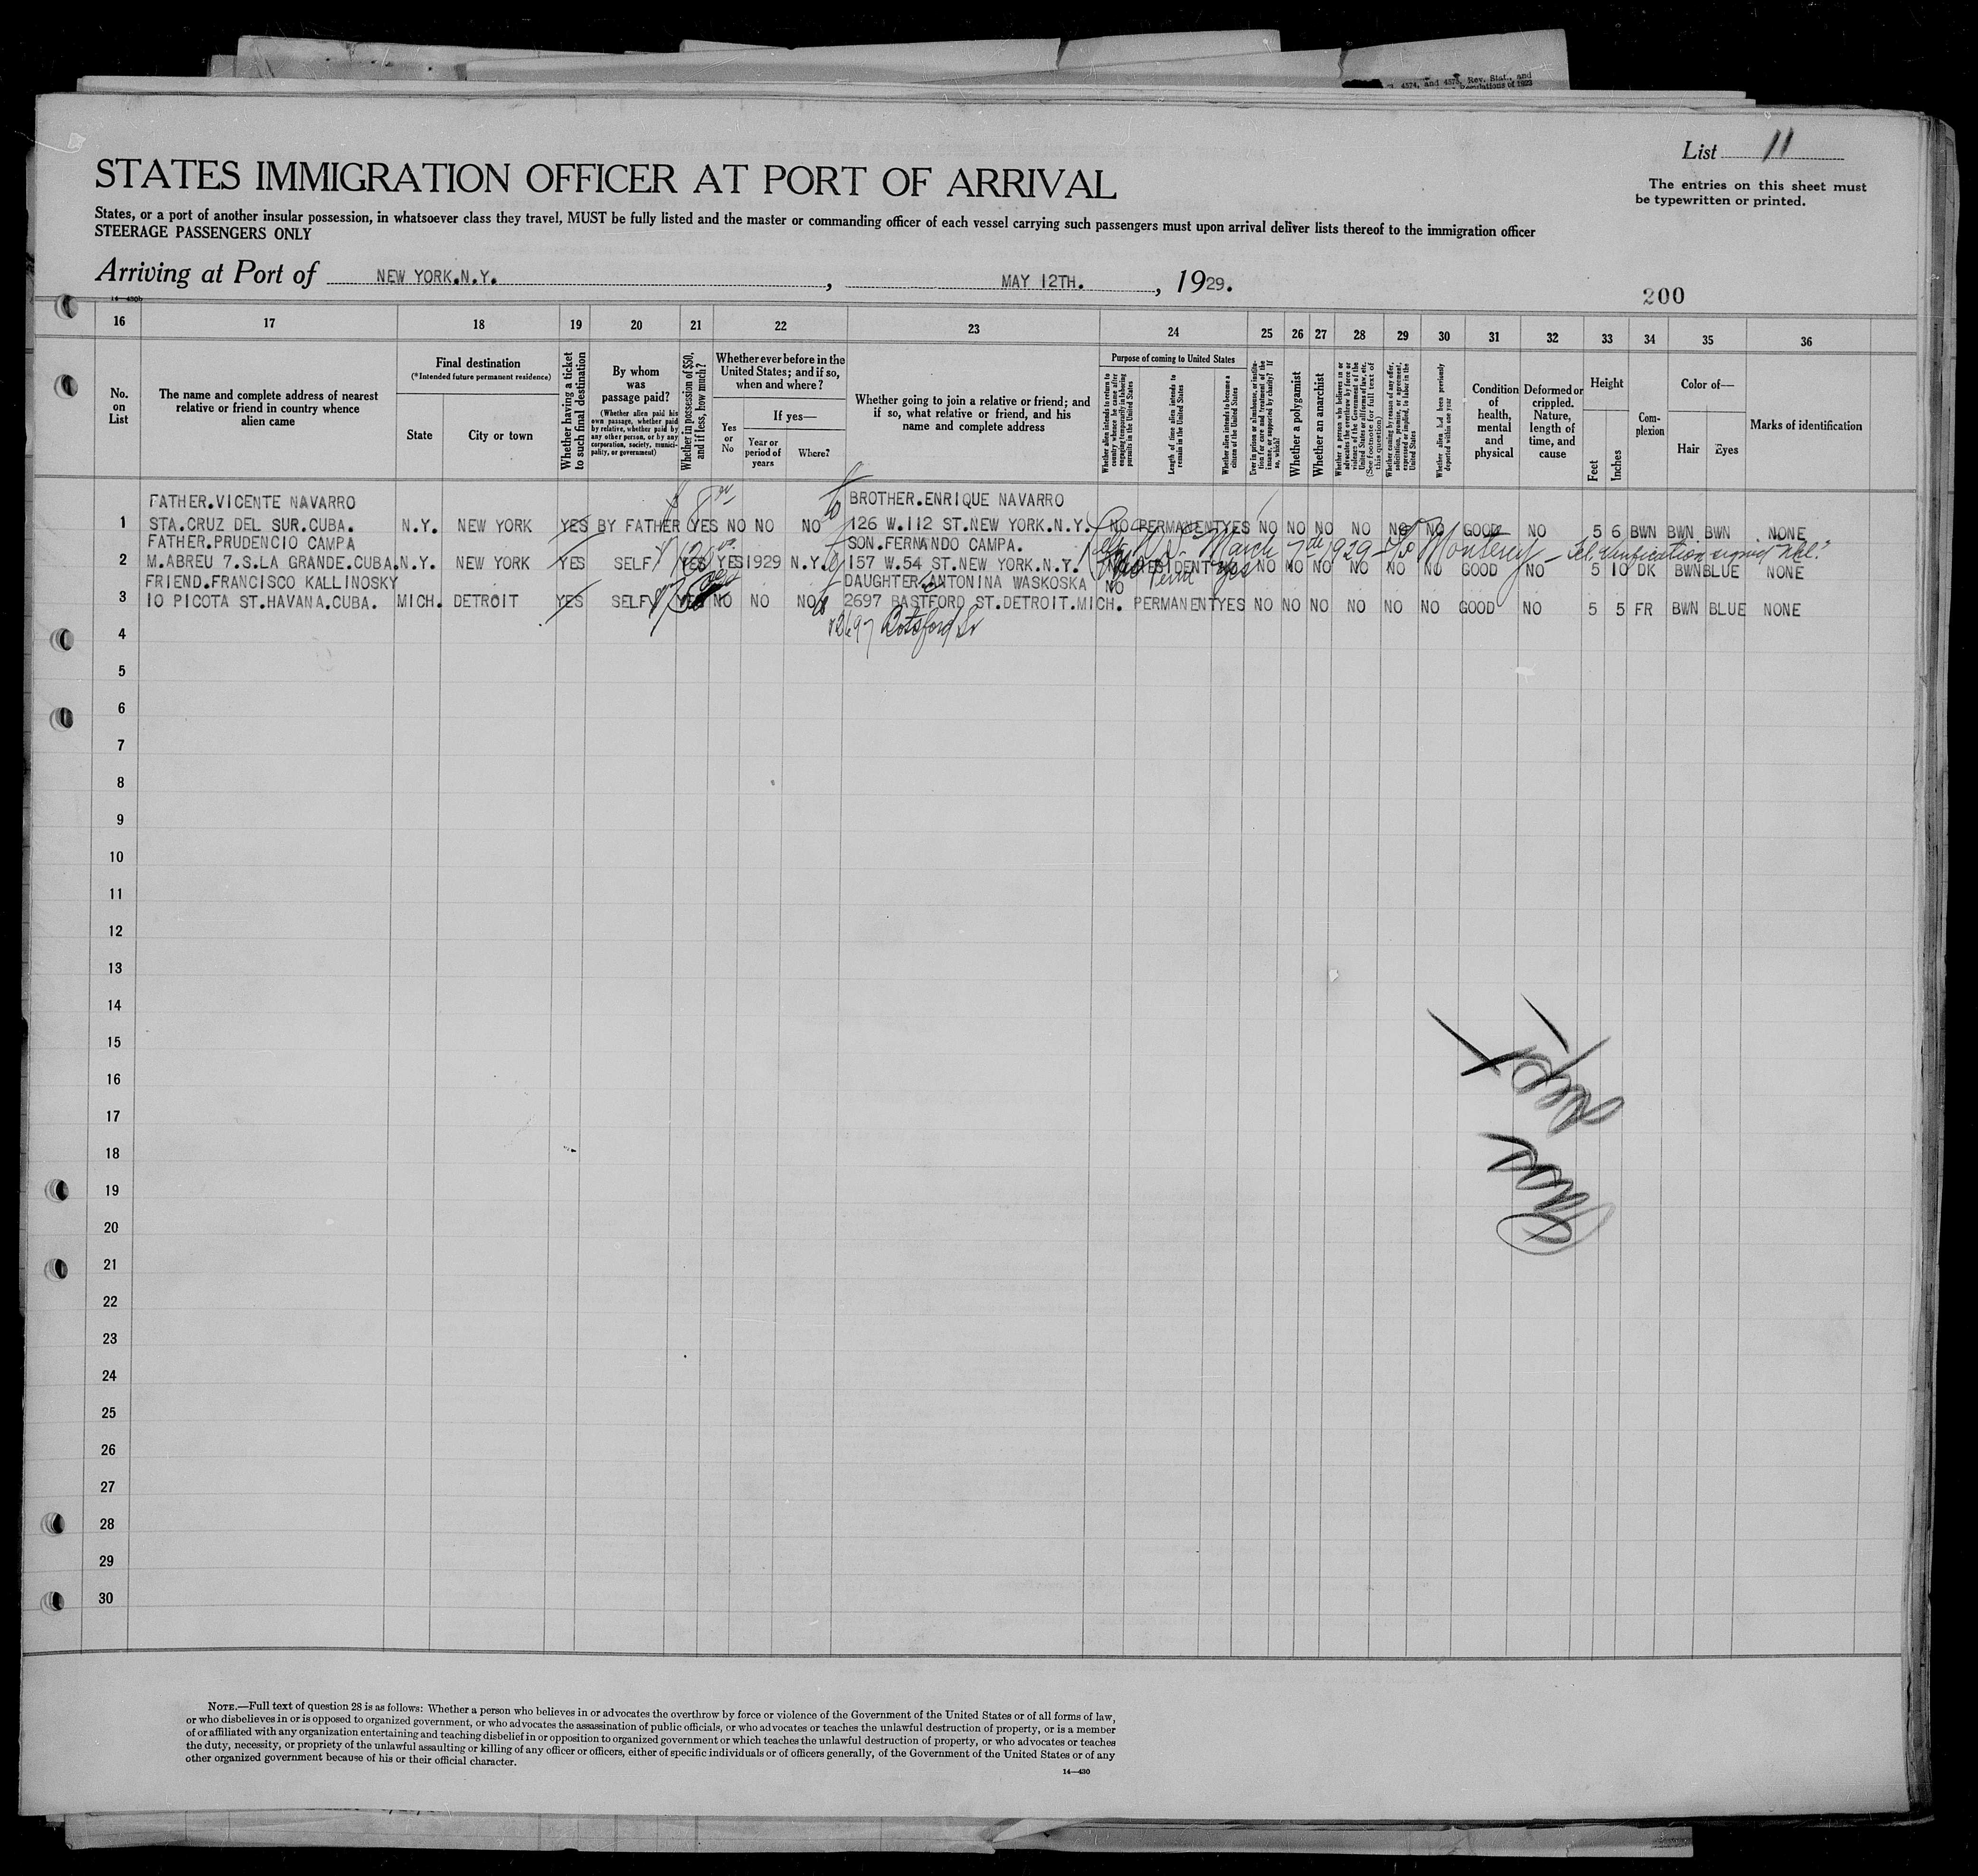 4574, and 4575, Rev. Stat., and
Regulations of 1923
List 11
The entries on this sheet must
be typewritten or printed.
STATES IMMIGRATION OFFICER AT PORT OF ARRIVAL
States, or a port of another insular possession, in whatsoever class they travel, MUST be fully listed and the master or commanding officer of each vessel carrying such passengers must upon arrival deliver lists thereof to the immigration officer
STEERAGE PASSENGERS ONLY
Arriving at Port of NEW YORK.N.Y. , MAY 12TH. , 1929.
14—430b
200
16 17 18 19 20 21 22 23 24 25 26 27 28 29 30 31 32 33 34 35 36
No.
on
List
The name and complete address of nearest
relative or friend in country whence
alien came
Final destination
(*Intended future permanent residence)
State
City or town
Whether having a ticket
to such final destination
By whom
was
passage paid?
(Whether alien paid his
own passage, whether paid
by relative, whether paid by
any other person, or by any
corporation, society, munici-
pality, or government)
Whether in possession of $50,
and if less, how much?
Whether ever before in the
United States; and if so,
when and where?
Yes
or
No
If yes—
Year or
period of
years
Where?
Whether going to join a relative or friend; and
if so, what relative or friend, and his
name and complete address
Purpose of coming to United States
Whether alien intends to return to
country whence he came after
engaging temporarily in laboring
pursuits in the United States
Length of time alien intends to
remain in the United States
Whether alien intends to become a
citizen of the United States
Ever in prison or almshouse, or institu-
tion for care and treatment of the
insane, or supported by charity? If
so, which?
Whether a polygamist
Whether an anarchist
Whether a person who believes in or
advocates the overthrow by force or
violence of the Government of the
United States or all forms of law, etc.
(See footnote for full text of
this question)
Whether coming by reason of any offer,
solicitation, promise, or agreement,
expressed or implied, to labor in the
United States
Whether alien had been previously
deported within one year
Condition
of
health,
mental
and
physical
Deformed or
crippled.
Nature,
length of
time, and
cause
Height
Feet
Inches
Com-
plexion
Color of—
Hair
Eyes
Marks of identification
FATHER.VICENTE NAVARRO BROTHER.ENRIQUE NAVARRO
1 STA.CRUZ DEL SUR.CUBA. N.Y. NEW YORK YES BY FATHER YES NO NO NO 126 W.112 ST.NEW YORK.N.Y. NO PERMANENT YES NO NO NO NO NO NO GOOD NO 5 6 BWN BWN BWN NONE
FATHER.PRUDENCIO CAMPA SON.FERNANDO CAMPA. N.Y. March 7th 1929 Monterey
2 M.ABREU 7.S.LA GRANDE.CUBA. N.Y. NEW YORK YES SELF YES YES 1929 N.Y. 157 W.54 ST.NEW YORK.N.Y. NO RESIDENT Yes NO NO NO NO NO NO GOOD NO 5 10 DK BWN BLUE NONE
FRIEND.FRANCISCO KALLINOSKY DAUGHTER ANTONINA WASKOSKA NO
3 10 PICOTA ST.HAVANA.CUBA. MICH. DETROIT YES SELF YES NO NO NO 2697 BASTFORD ST.DETROIT.MICH. PERMANENT YES NO NO NO NO NO NO GOOD NO 5 5 FR BWN BLUE NONE
2697 Botsford St
4
5
6
7
8
9
10
11
12
13
14
15
16
17
18
19
20
21
22
23
24
25
26
27
28
29
30
NOTE.—Full text of question 28 is as follows: Whether a person who believes in or advocates the overthrow by force or violence of the Government of the United States or of all forms of law,
or who disbelieves in or is opposed to organized government, or who advocates the assassination of public officials, or who advocates or teaches the unlawful destruction of property, or is a member
of or affiliated with any organization entertaining and teaching disbelief in or opposition to organized government or which teaches the unlawful destruction of property, or who advocates or teaches
the duty, necessity, or propriety of the unlawful assaulting or killing of any officer or officers, either of specific individuals or of officers generally, of the Government of the United States or of any
other organized government because of his or their official character.
14—430